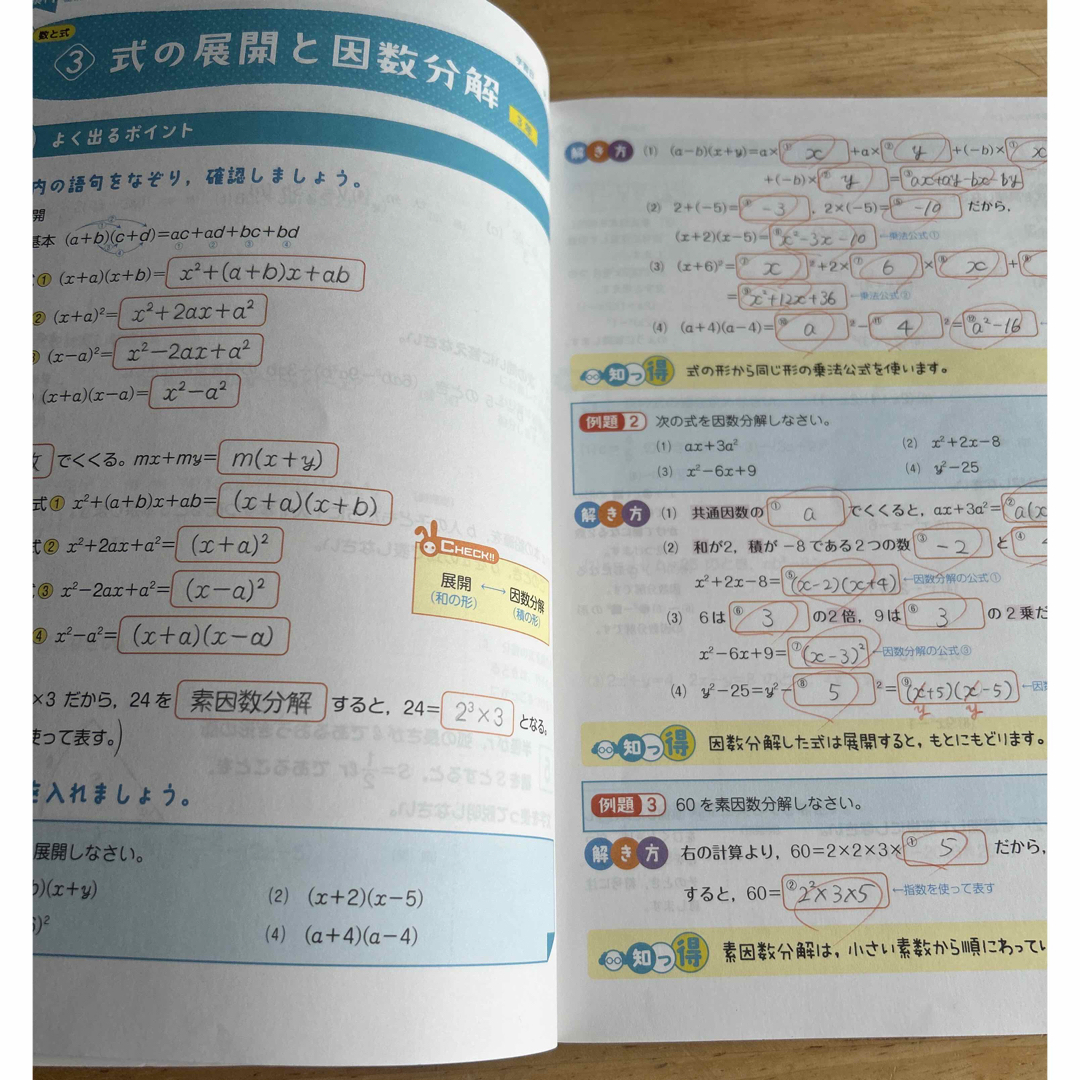 数と式
③ 式の展開と因数分解
3年
よく出るポイント
内の語句をなぞり，確認しましょう。
開
基本 (a+b)(c+d)=ac+ad+bc+bd
① ② ③ ④
① (x+a)(x+b)= x²+(a+b)x+ab
② (x+a)²= x²+2ax+a²
(x−a)²= x²−2ax+a²
(x+a)(x−a)= x²−a²
でくくる。mx+my= m(x+y)
式① x²+(a+b)x+ab= (x+a)(x+b)
式② x²+2ax+a²= (x+a)²
③ x²−2ax+a²= (x−a)²
④ x²−a²= (x+a)(x−a)
CHECK!!
展開 ←→ 因数分解
(和の形) (積の形)
×3 だから，24を 素因数分解 すると，24= 2³×3 となる。
使って表す。)
を入れましょう。
展開しなさい。
)(x+y)
(2) (x+2)(x−5)
)²
(4) (a+4)(a−4)
解き方 (1) (a−b)(x+y)=a× ① x +a× ② y +(−b)× ① x
+(−b)× ② y = ③ ax+ay−bx−by
(2) 2+(−5)= ④ −3 ，2×(−5)= ⑤ −10 だから，
(x+2)(x−5)= ⑥ x²−3x−10 ←乗法公式①
(3) (x+6)²= ⑦ x ²+2× ⑦ 6 × ⑧ x +
= ⑨ x²+12x+36 ←乗法公式②
(4) (a+4)(a−4)= ⑩ a ²− ⑪ 4 ²= ⑫ a²−16
知っ得 式の形から同じ形の乗法公式を使います。
例題 2 次の式を因数分解しなさい。
(1) ax+3a²
(2) x²+2x−8
(3) x²−6x+9
(4) y²−25
解き方 (1) 共通因数の ① a でくくると，ax+3a²= ② a(x
(2) 和が2，積が−8である2つの数 ③ −2 と ④
x²+2x−8= ⑤ (x−2)(x+4) ←因数分解の公式①
(3) 6は ⑥ 3 の2倍，9は ⑥ 3 の2乗だ
x²−6x+9= ⑦ (x−3)² ←因数分解の公式③
(4) y²−25=y²− ⑧ 5 ²= ⑨ (x+5)(x−5) ←因
y y
知っ得 因数分解した式は展開すると，もとにもどります。
例題 3 60を素因数分解しなさい。
解き方 右の計算より，60=2×2×3× ① 5 だから，
すると，60= ② 2²×3×5 ←指数を使って表す
知っ得 素因数分解は，小さい素数から順にわってい